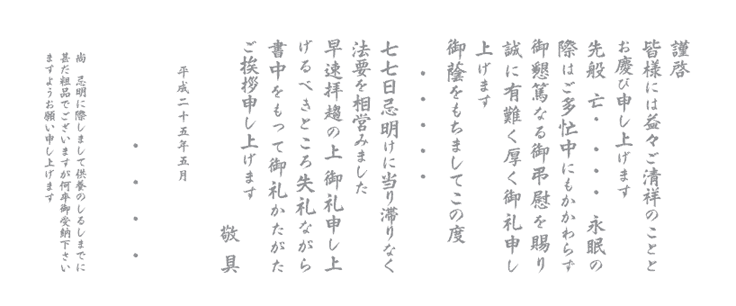 謹啓
皆様には益々ご清祥のことと
お慶び申し上げます
先般 亡・・・・ 永眠の
際はご多忙中にもかかわらず
御懇篤なる御弔慰を賜り
誠に有難く厚く御礼申し
上げます
御蔭をもちましてこの度
・・・・・
七七日忌明けに当り滞りなく
法要を相営みました
早速拝趨の上 御礼申し上
げるべきところ失礼ながら
書中をもって御礼かたがた
ご挨拶申し上げます
敬具
平成二十五年五月
・・・・
尚 忌明に際しまして供養のしるしまでに
甚だ粗品でございますが何卒御受納下さい
ますようお願い申し上げます